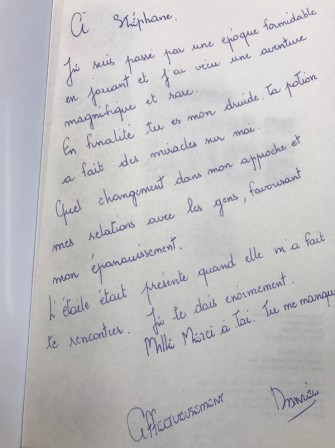 à Stéphane.
Je suis passé par une époque formidable
en jouant et j'ai vécu une aventure
magnifique et rare.
En finalité tu es mon druide. Ta potion
a fait des miracles sur moi.
Quel changement dans mon approche et
mes relations avec les gens, favorisant
mon épanouissement.
L'étoile était présente quand elle m'a fait
te rencontrer. Je te dois énormément.
Mille Merci à Toi. Tu me manques
Affectueusement